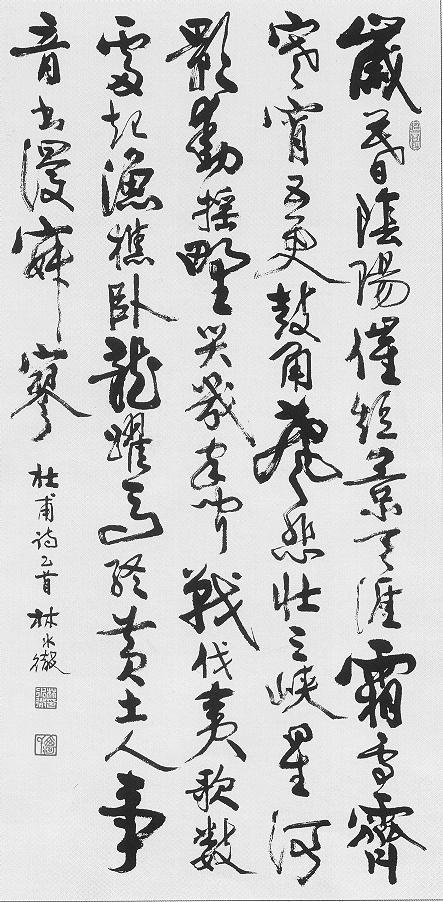 歲暮陰陽催短景天涯霜雪霽
寒宵五更鼓角聲悲壯三峽星河
影動搖野哭幾家聞戰伐夷歌數
處起漁樵臥龍躍馬終黃土人事
音書漫寂寥
杜甫詩乙首